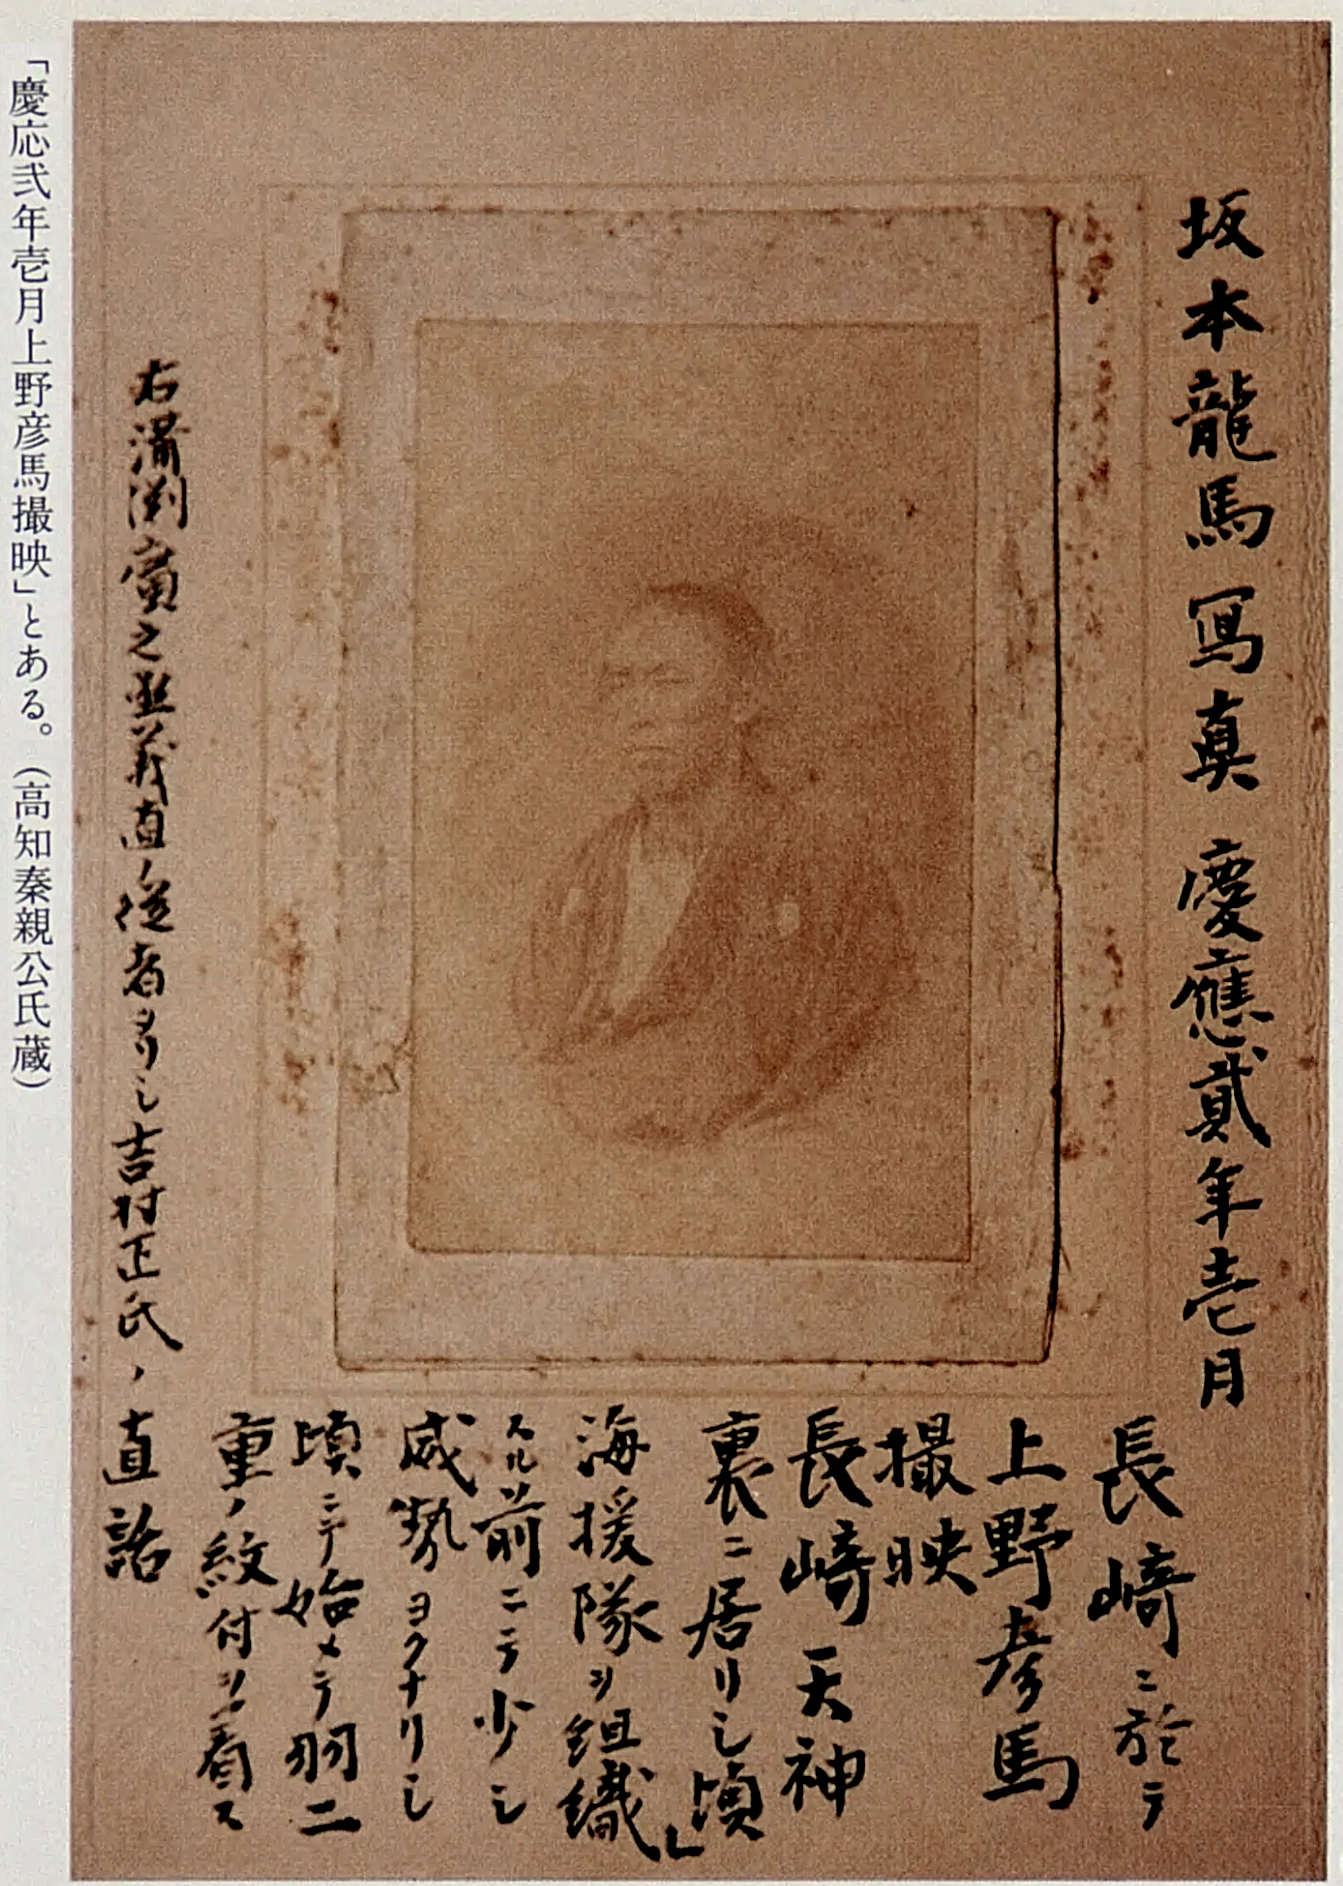 坂本龍馬写真 慶應貳年壱月
長崎ニ於テ
上野彦馬
撮映
長崎天神
裏ニ居リし頃」
海援隊ヲ組織
スル前ニテ少シ
威勢ヨクナリし
頃ニテ始メテ羽二
重ノ紋付ヲ着ス
右溝渕廣之丞義直ノ従者タリし吉村正氏ノ直話
「慶応弐年壱月上野彦馬撮映」とある。(高知秦親公氏蔵)